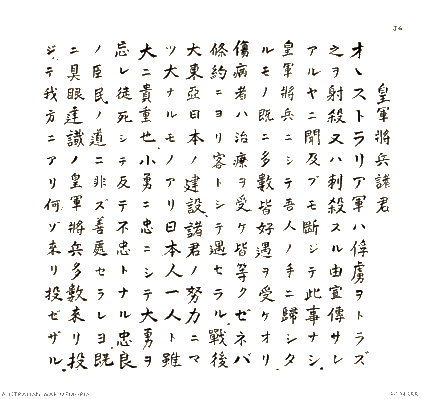 J6
皇軍將兵諸君
オーストラリア軍ハ俘虜ヲトラズ
之ヲ射殺又ハ刺殺スル由宣傳サレ
アルヤニ聞及ブモ斷ジテ此事ナシ
皇軍將兵ニシテ吾人ノ手ニ歸シタ
ルモノ既ニ多數皆好遇ヲ受ケオリ
傷病者ハ治療ヲ受ケ皆等クゼネバ
條約ニヨリ客トシテ遇セラル。戰後
大東亞日本ノ建設諸君ノ努力ニマ
ツ大ナルモノアリ日本人一人ト雖
大ニ貴重也。小勇ニ忠ニシテ大勇ヲ
忘レ徒死シテ反テ不忠トナル忠良
ノ臣民ノ道ニ非ズ善處セラレヨ既
ニ具眼達識ノ皇軍將兵多數來リ投
ジテ我方ニアリ何ゾ來リ投ゼザル。
AUSTRALIAN WAR MEMORIAL